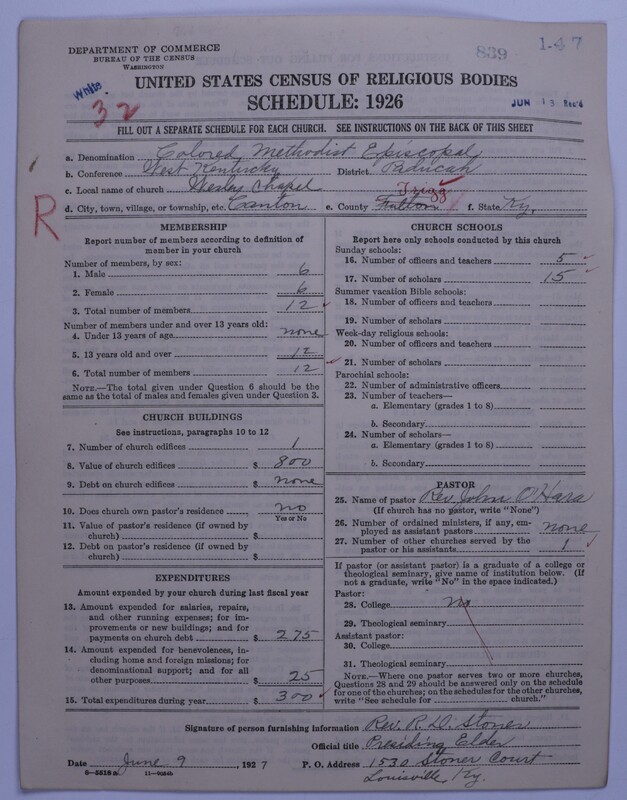 839
1-47
DEPARTMENT OF COMMERCE
BUREAU OF THE CENSUS
WASHINGTON
White
32
UNITED STATES CENSUS OF RELIGIOUS BODIES
SCHEDULE: 1926
JUN 13 Rec'd
FILL OUT A SEPARATE SCHEDULE FOR EACH CHURCH. SEE INSTRUCTIONS ON THE BACK OF THIS SHEET
a. Denomination Colored Methodist Episcopal
b. Conference West Kentucky District Paducah
c. Local name of church Wesley Chapel
Trigg
d. City, town, village, or township, etc. Canton e. County Fulton f. State Ky.
R
MEMBERSHIP
Report number of members according to definition of
member in your church
Number of members, by sex:
1. Male 6
2. Female 6
3. Total number of members 12
Number of members under and over 13 years old:
4. Under 13 years of age none
5. 13 years old and over 12
6. Total number of members 12
NOTE.—The total given under Question 6 should be
same as the total of males and females given under Question 3.
CHURCH BUILDINGS
See instructions, paragraphs 10 to 12
7. Number of church edifices 1
8. Value of church edifices $ 800
9. Debt on church edifices $ none
10. Does church own pastor's residence no
Yes or No
11. Value of pastor's residence (if owned by
church) $
12. Debt on pastor's residence (if owned by
church) $
EXPENDITURES
Amount expended by your church during last fiscal year
13. Amount expended for salaries, repairs,
and other running expenses; for im-
provements or new buildings; and for
payments on church debt $ 275
14. Amount expended for benevolences, in-
cluding home and foreign missions; for
denominational support; and for all
other purposes $ 25
15. Total expenditures during year $ 300
CHURCH SCHOOLS
Report here only schools conducted by this church
Sunday schools:
16. Number of officers and teachers 5
17. Number of scholars 15
Summer vacation Bible schools:
18. Number of officers and teachers
19. Number of scholars
Week-day religious schools:
20. Number of officers and teachers
21. Number of scholars
Parochial schools:
22. Number of administrative officers
23. Number of teachers—
a. Elementary (grades 1 to 8)
b. Secondary
24. Number of scholars—
a. Elementary (grades 1 to 8)
b. Secondary
PASTOR
25. Name of pastor Rev. John O'Hara
(If church has no pastor, write "None")
26. Number of ordained ministers, if any, em-
ployed as assistant pastors none
27. Number of other churches served by the
pastor or his assistants 1
If pastor (or assistant pastor) is a graduate of a college or
theological seminary, give name of institution below. (If
not a graduate, write "No" in the space indicated.)
Pastor:
28. College no
29. Theological seminary
Assistant pastor:
30. College
31. Theological seminary
NOTE.—Where one pastor serves two or more churches,
Questions 28 and 29 should be answered only on the schedule
for one of the churches; on the schedules for the other churches,
write "See schedule for church."
Signature of person furnishing information Rev. R. D. Stoner
Official title Presiding Elder
Date June 9, 1927 P. O. Address 1530 Stoner Court
Louisville, Ky.